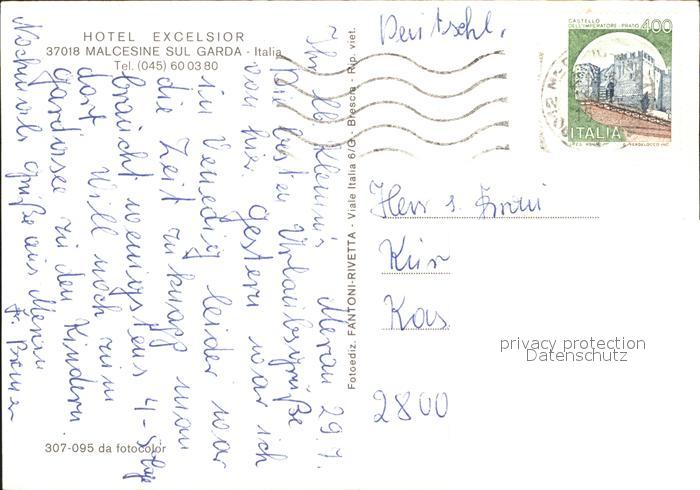 HOTEL EXCELSIOR
37018 MALCESINE SUL GARDA - Italia
Tel. (045) 60 03 80
Ihr lb. Meran 29.7.
Die besten Urlaubsgrüße
von hier gestern war ich
in Venedig leider war
die Zeit zu knapp man
braucht wenigstens 4-5 Tage
dort. Will noch zum
Gardasee zu den Kindern.
Nochmals Grüße aus Meran
F.
307-095 da fotocolor
Fotoediz. FANTONI-RIVETTA - Viale Italia 6/G - Brescia - Rip. viet.
Deutschl.
CASTELLO
DELL'IMPERATORE - PRATO
400
ITALIA
Herr u. Frau
Kas
2800
privacy protection
Datenschutz